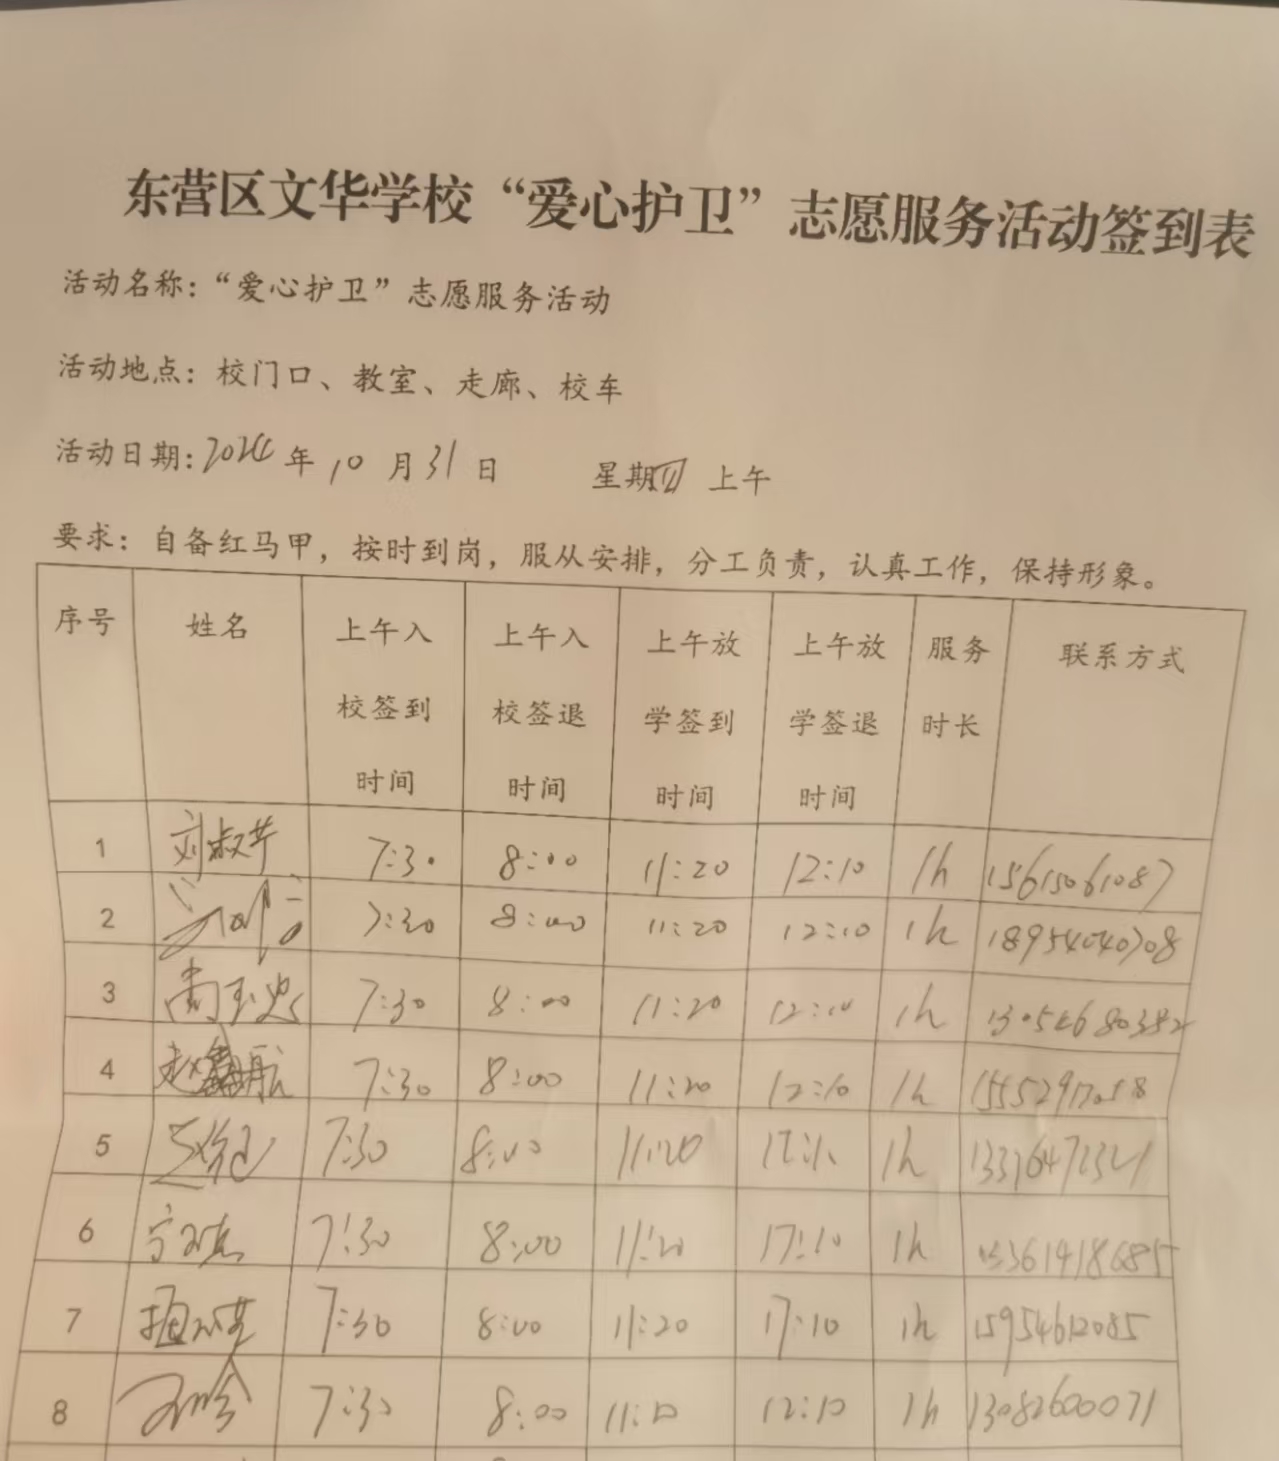 东营区文华学校“爱心护卫”志愿服务活动签到表
活动名称：“爱心护卫”志愿服务活动
活动地点：校门口、教室、走廊、校车
活动日期：2024年10月31日 星期四 上午
要求：自备红马甲，按时到岗，服从安排，分工负责，认真工作，保持形象。
序号 姓名 上午入校签到时间 上午入校签退时间 上午放学签到时间 上午放学签退时间 服务时长 联系方式
1 刘淑芹 7:30 8:00 11:20 12:10 1h 15615061087
2 7:30 8:00 11:20 12:10 1h 18954040708
3 7:30 8:00 11:20 12:10 1h 13054680382
4 7:30 8:00 11:20 12:10 1h
5 7:30 8:00 11:20 1h
6 7:30 8:00 11:20 17:10 1h
7 7:30 8:00 11:20 17:10 1h 15954612085
8 7:30 8:00 11:20 12:10 1h 13082600071